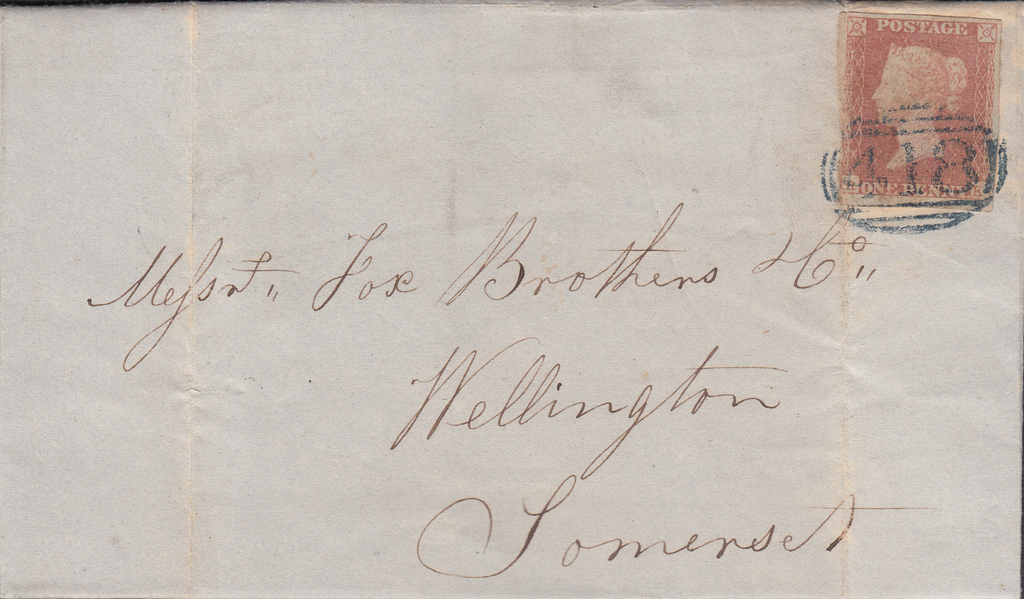 POSTAGE
418
ONE PENNY
Messrs. Fox Brothers & Co.
Wellington
Somerset